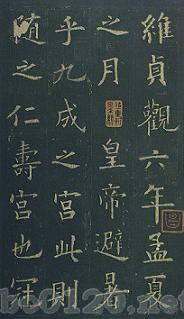 維貞觀六年孟夏
之月皇帝避暑
乎九成之宮此則
随之仁壽宮也冠